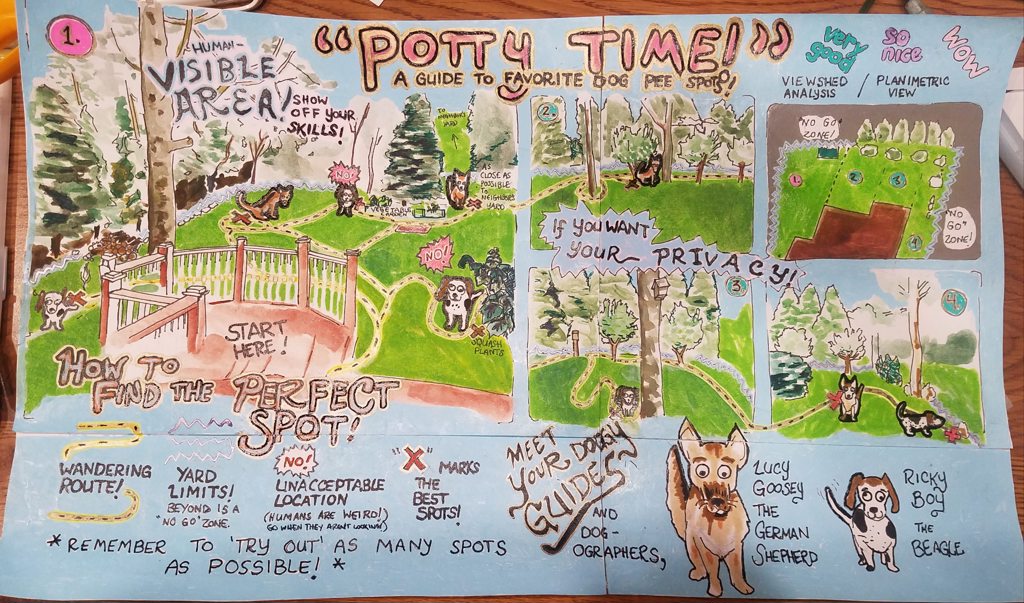 1.
"POTTY TIME!"
A GUIDE TO FAVORITE DOG PEE SPOTS!
very good
so nice
WOW
VIEWSHED ANALYSIS / PLANIMETRIC VIEW
HUMAN-
VISIBLE
AREA!
SHOW
OFF YOUR
SKILLS!
NO!
VEGETABLE
YARD
AS
CLOSE AS
POSSIBLE
TO
NEIGHBORS
YARD
NO!
SQUASH
PLANTS
START
HERE!
HOW TO
FIND THE PERFECT
SPOT!
2.
IF YOU WANT
YOUR PRIVACY!
3
4.
"NO GO"
ZONE!
1
2
3
4
"NO
GO"
ZONE!
WANDERING
ROUTE!
YARD
LIMITS!
BEYOND IS A
"NO GO" ZONE.
NO!
UNACCEPTABLE
LOCATION
(HUMANS ARE WEIRD!)
GO WHEN THEY AREN'T LOOKING!
"X" MARKS
THE
BEST
SPOTS!
*REMEMBER TO 'TRY OUT' AS MANY SPOTS
AS POSSIBLE!*
MEET
YOUR DOGGY
GUIDES
AND
DOG-
OGRAPHERS,
LUCY
GOOSEY
THE
GERMAN
SHEPHERD
RICKY
BOY
THE
BEAGLE